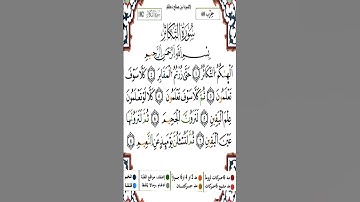 سُورَةُ التَّكَاثُرِ
بِسْمِ اللَّهِ الرَّحْمَٰنِ الرَّحِيمِ
أَلْهَىٰكُمُ التَّكَاثُرُ ١ حَتَّىٰ زُرْتُمُ الْمَقَابِرَ ٢ كَلَّا سَوْفَ
تَعْلَمُونَ ٣ ثُمَّ كَلَّا سَوْفَ تَعْلَمُونَ ٤ كَلَّا لَوْ تَعْلَمُونَ
عِلْمَ الْيَقِينِ ٥ لَتَرَوُنَّ الْجَحِيمَ ٦ ثُمَّ لَتَرَوُنَّهَا
عَيْنَ الْيَقِينِ ٧ ثُمَّ لَتُسْـَٔلُنَّ يَوْمَئِذٍ عَنِ النَّعِيمِ ٨